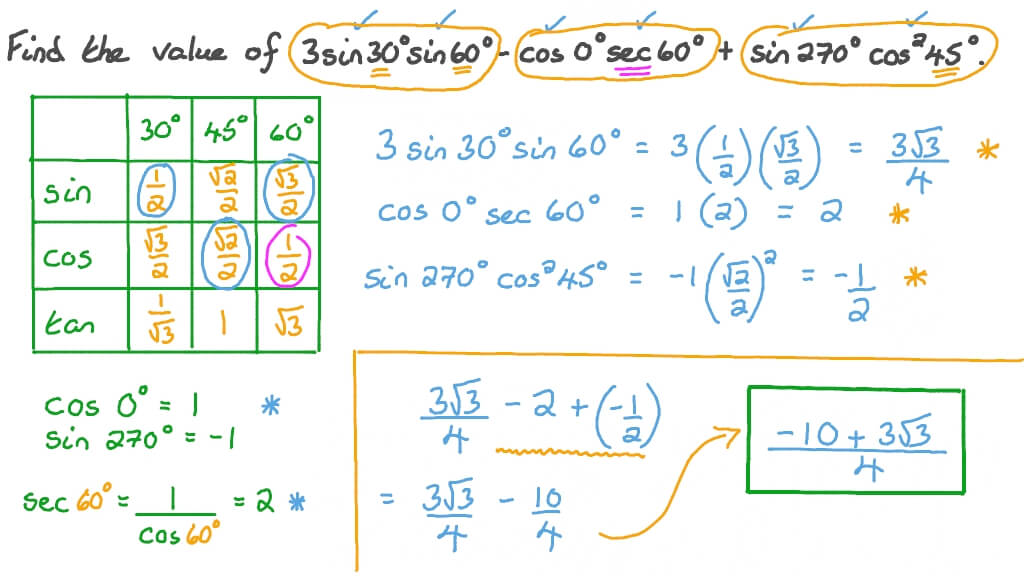 Find the value of 3 sin 30° sin 60° - cos 0° sec 60° + sin 270° cos² 45°.
30° 45° 60°
sin 1/2 √2/2 √3/2
cos √3/2 √2/2 1/2
tan 1/√3 1 √3
3 sin 30° sin 60° = 3 (1/2) (√3/2) = 3√3/4 *
cos 0° sec 60° = 1 (2) = 2 *
sin 270° cos² 45° = -1 (√2/2)² = -1/2 *
cos 0° = 1 *
sin 270° = -1
sec 60° = 1/cos 60° = 2 *
3√3/4 - 2 + (-1/2)
= 3√3/4 - 10/4
-10 + 3√3/4